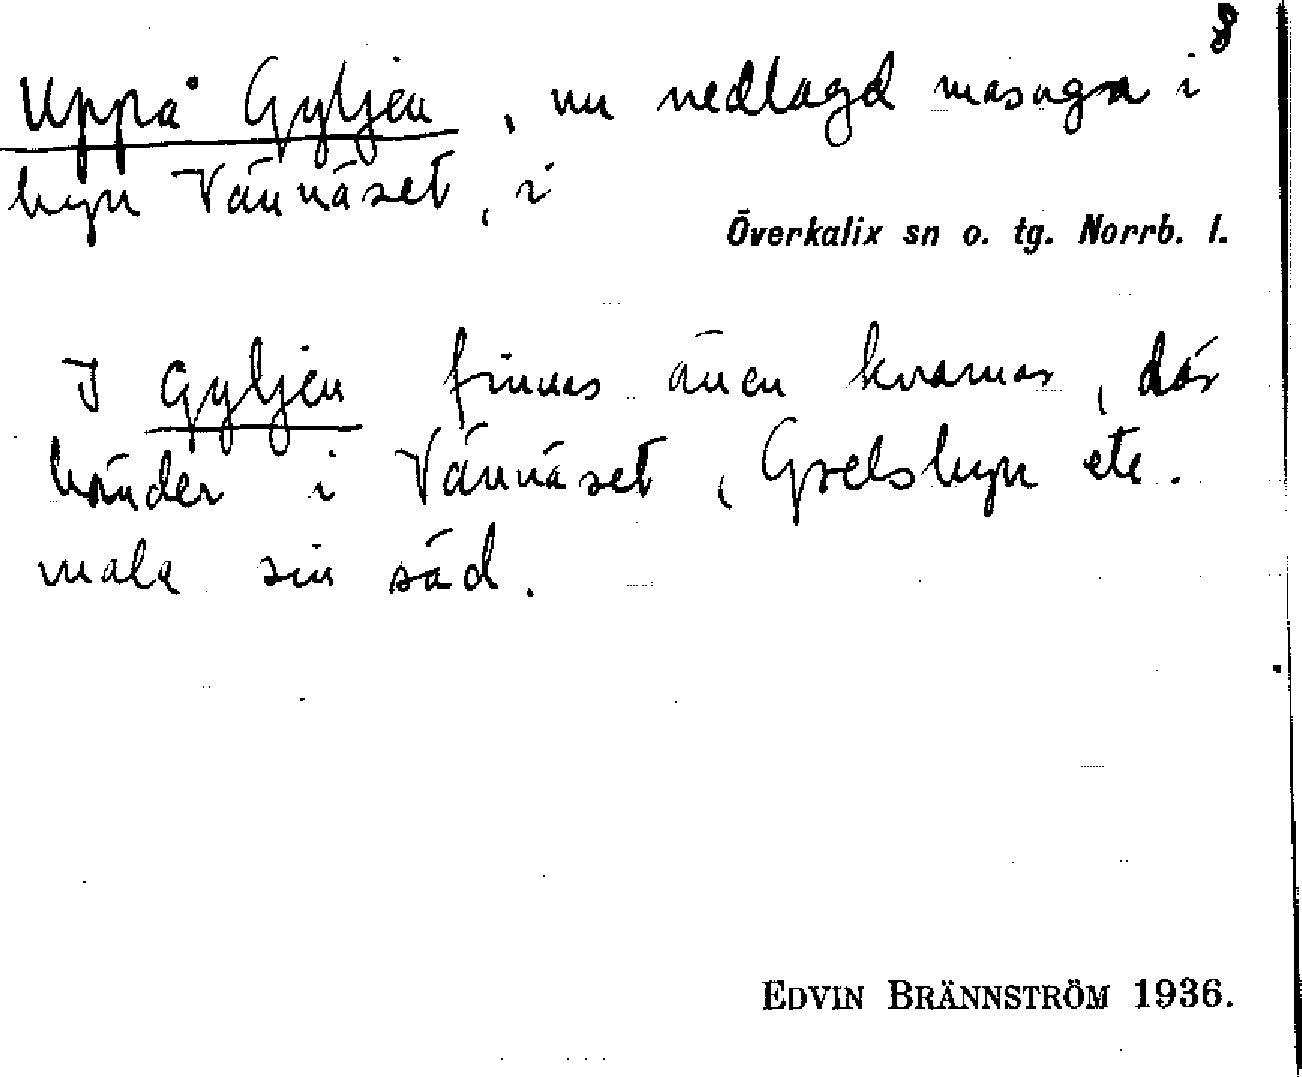 8
Uppå Gyljen, nu nedlagd masugn i
byn Vännäset, i
Överkalix sn o. tg. Norrb. l.
I Gyljen finnas även kvarnar, där
bönder i Vännäset, Grelsbyn etc.
mala sin säd.
EDVIN BRÄNNSTRÖM 1936.